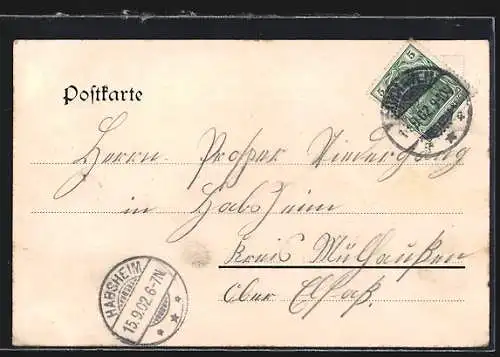 5
5
Postkarte
02.9
Herrn. Prosper Niedergang
in Habsheim
Kreis Mülhausen
Ober Elsaß.
HABSHEIM
15.9.02.6-7N.